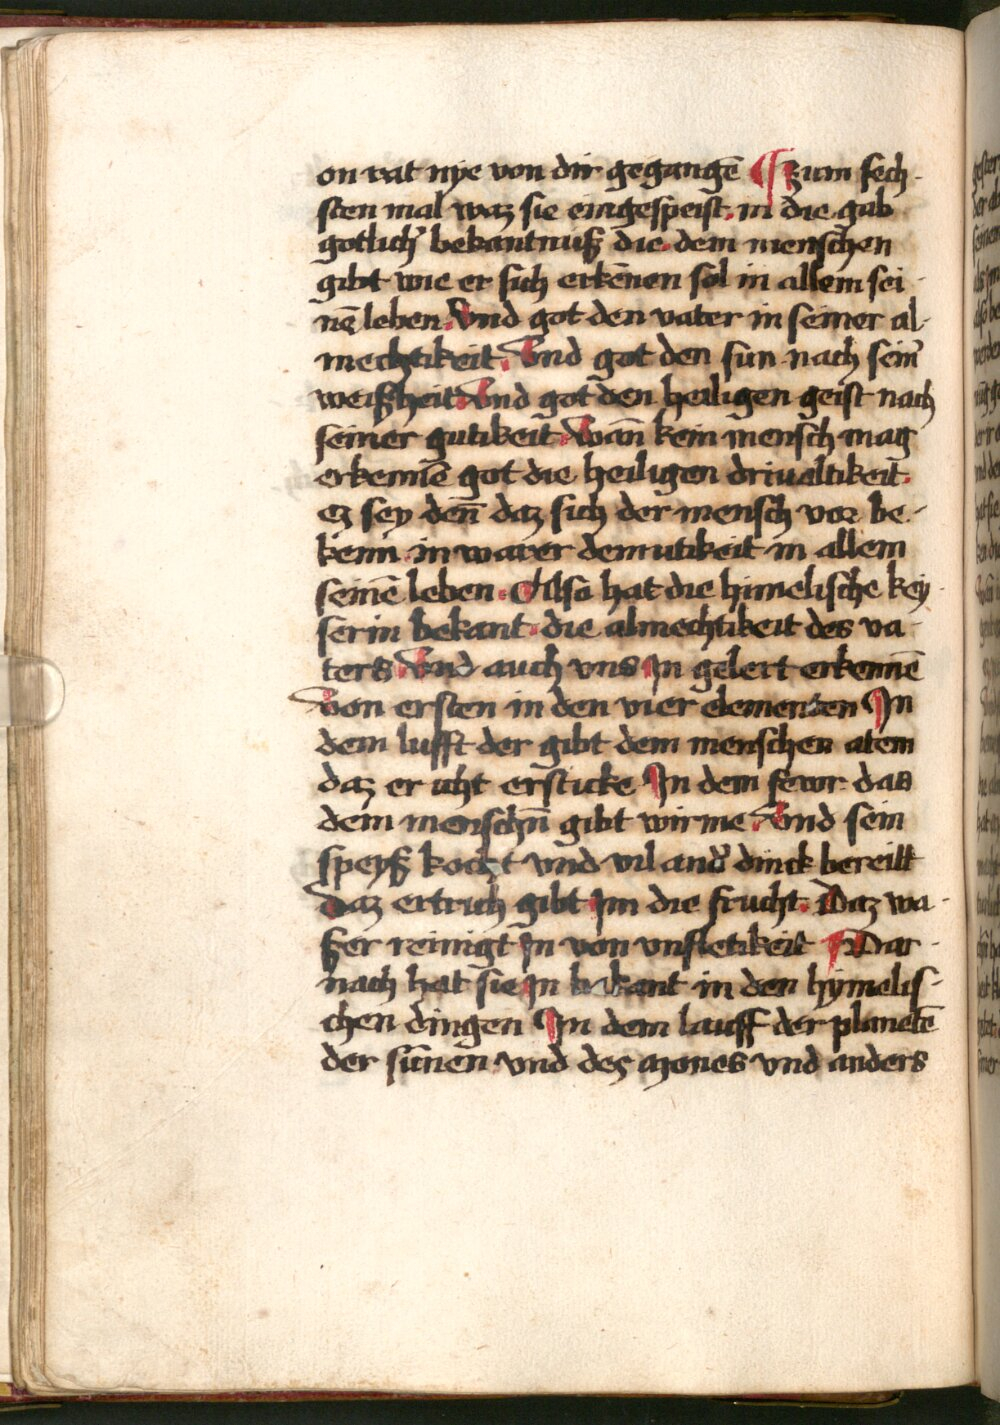 on rat nye von dir gegangē ¶ zum sech-
sten mal waz sie eingespeist. in die gab
gotlich' bekantnuß die. dem menschen
gibt wie er sich erkēnen sol in allem sei-
nē leben. Vnd got den vater in seiner al-
mechtikeit. Vnd got den sun nach sein'
weißheit. Vnd got den heiligen geist nach
seiner gutikeit. Wān kein mensch mag
erkennē got die heiligen driualtikeit.
ez sey deñ daz sich der mensch vor be-
kenn. in warer demutikeit in allem
seinē leben. Also hat die himelische key-
serin bekant. die almechtikeit des va-
ters. Vnd auch vns In gelert erkennē
Von ersten in den vier elementen In
dem lufft der gibt dem menschen atem
daz er icht ersticke In dem fewr das
dem menschñ gibt wirme. Vnd sein
speyß kocht vnd vil and' dinck bereitt
Daz ertrich gibt Im die frucht. Daz wa-
ßer reinigt In von vnfletikeit ¶ Dar-
nach hat sie In bekant in den hymelis-
chen dingen In dem lauff der planetē
der sūnen vnd dez mones vnd anders